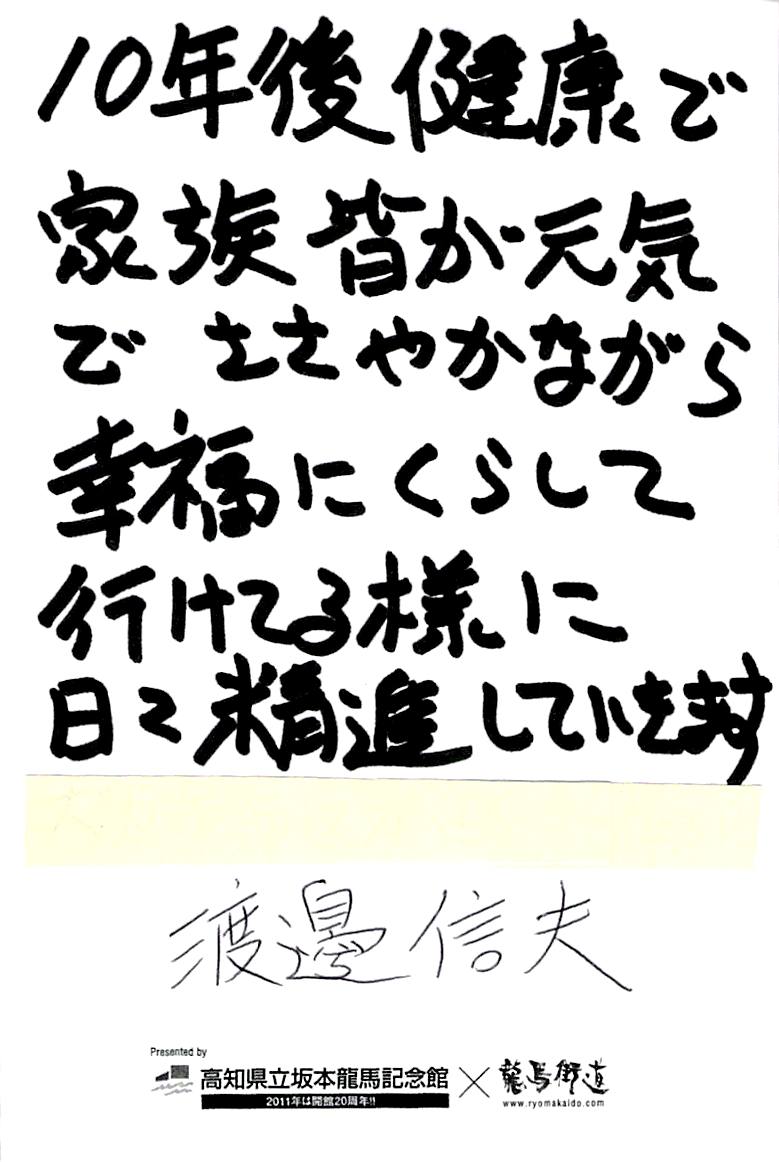 10年後健康で
家族皆が元気
で ささやかながら
幸福にくらして
行けてる様に
日々精進していきます
渡邊信夫
Presented by
高知県立坂本龍馬記念館 × 龍馬街道
2011年は開館20周年!! www.ryomakaido.com